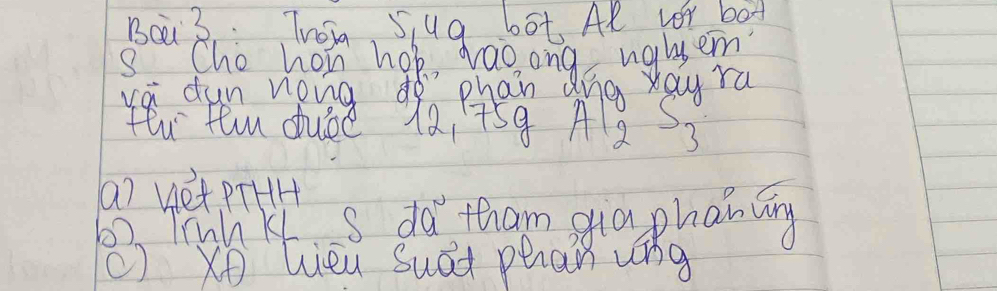 Bài 3: Trộn 5,4g bột Al với bột
S Cho hỗn hợp vào ống nghiệm
và đun nóng để phản ứng xảy ra
thì thu được 12,75g Al2 S3
a) Viết PTHH
b) Tính KL S đã tham gia phản ứng
c) XĐ hiệu suất phản ứng